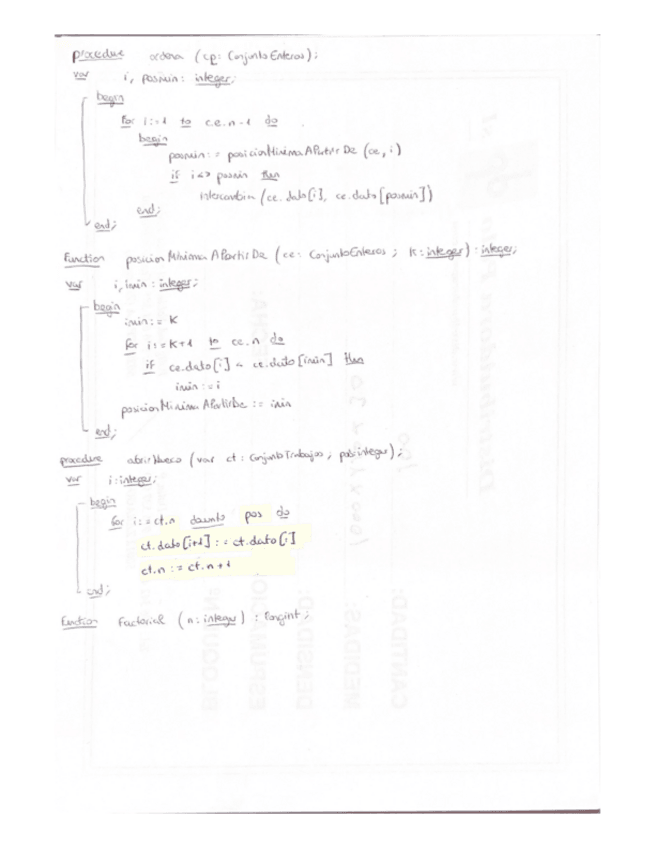 procedure ordena (cp: ConjuntoEnteros);
var i, posmin: integer;
begin
for i:=1 to c.e.n-1 do
begin
posmin:= posicionMinimaAPartirDe (ce, i)
if i<> posmin then
intercambia (ce.dato[i], ce.dato[posmin])
end;
end;
Function posicionMinimaAPartirDe (ce: ConjuntoEnteros; K: integer): integer;
var i, imin: integer;
begin
imin:= K
for i:=K+1 to ce.n do
if ce.dato[i] < ce.dato[imin] then
imin:=i
posicionMinimaAPartirDe := imin
end;
procedure abrirHueco (var ct: ConjuntoTrabajos; pos:integer);
var i:integer;
begin
for i:=ct.n downto pos do
ct.dato[i+1]:= ct.dato[i]
ct.n:= ct.n+1
end;
function Factorial (n: integer): longint;
CANTIDAD:
MEDIDAS:
DENSIDAD: